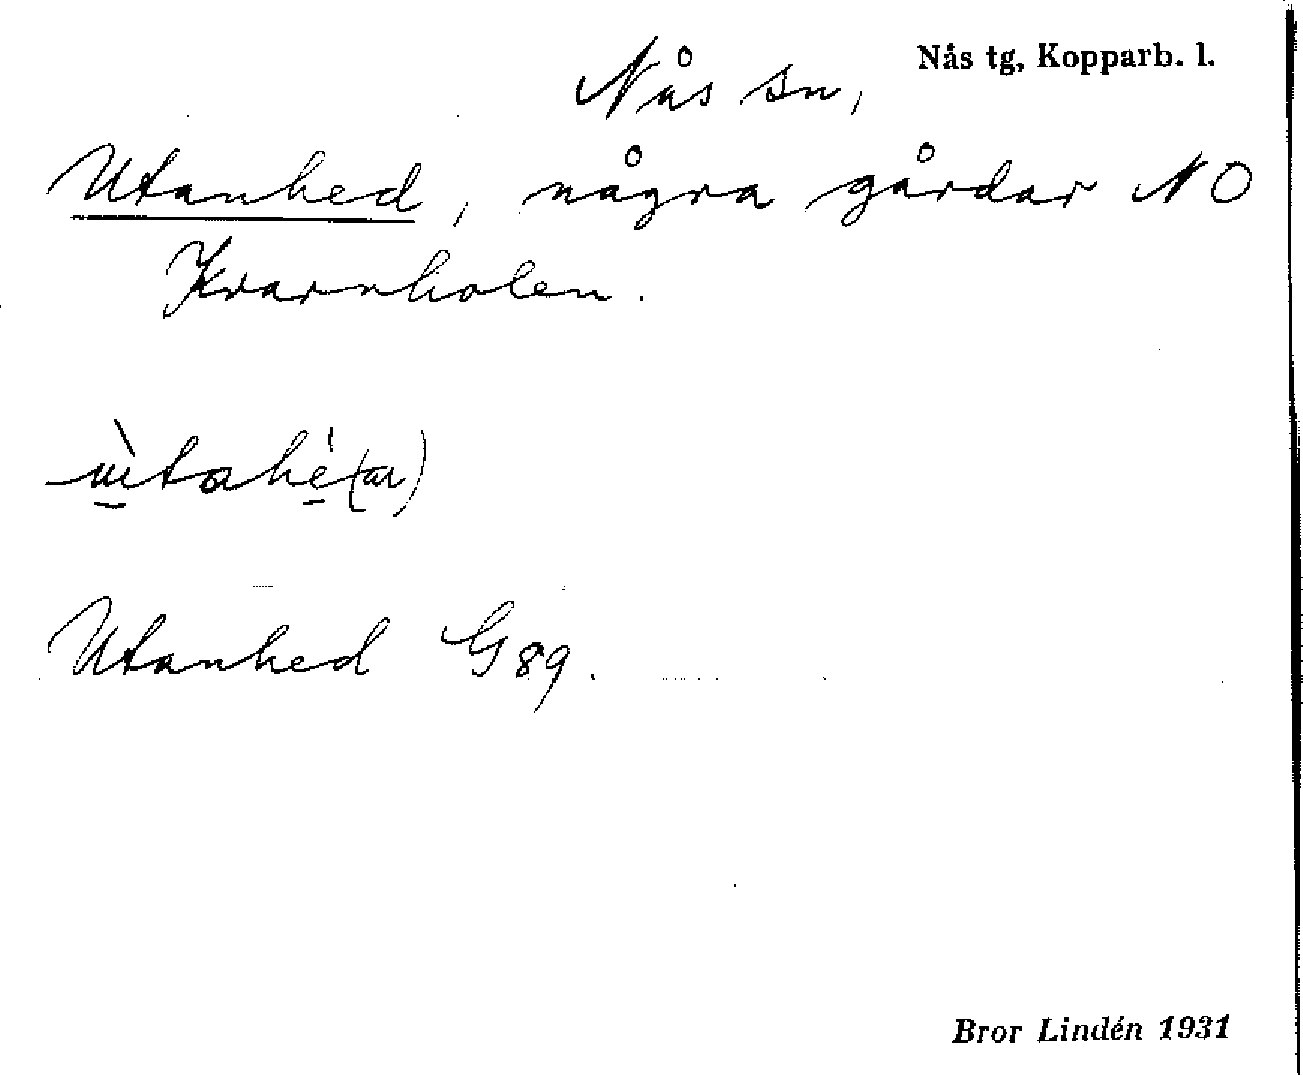 Nås tg, Kopparb. l.
Nås sn,
Utanhed, några gårdar NO
Kvarnholen.
ùtahé(ar)
Utanhed G 89.
Bror Lindén 1931